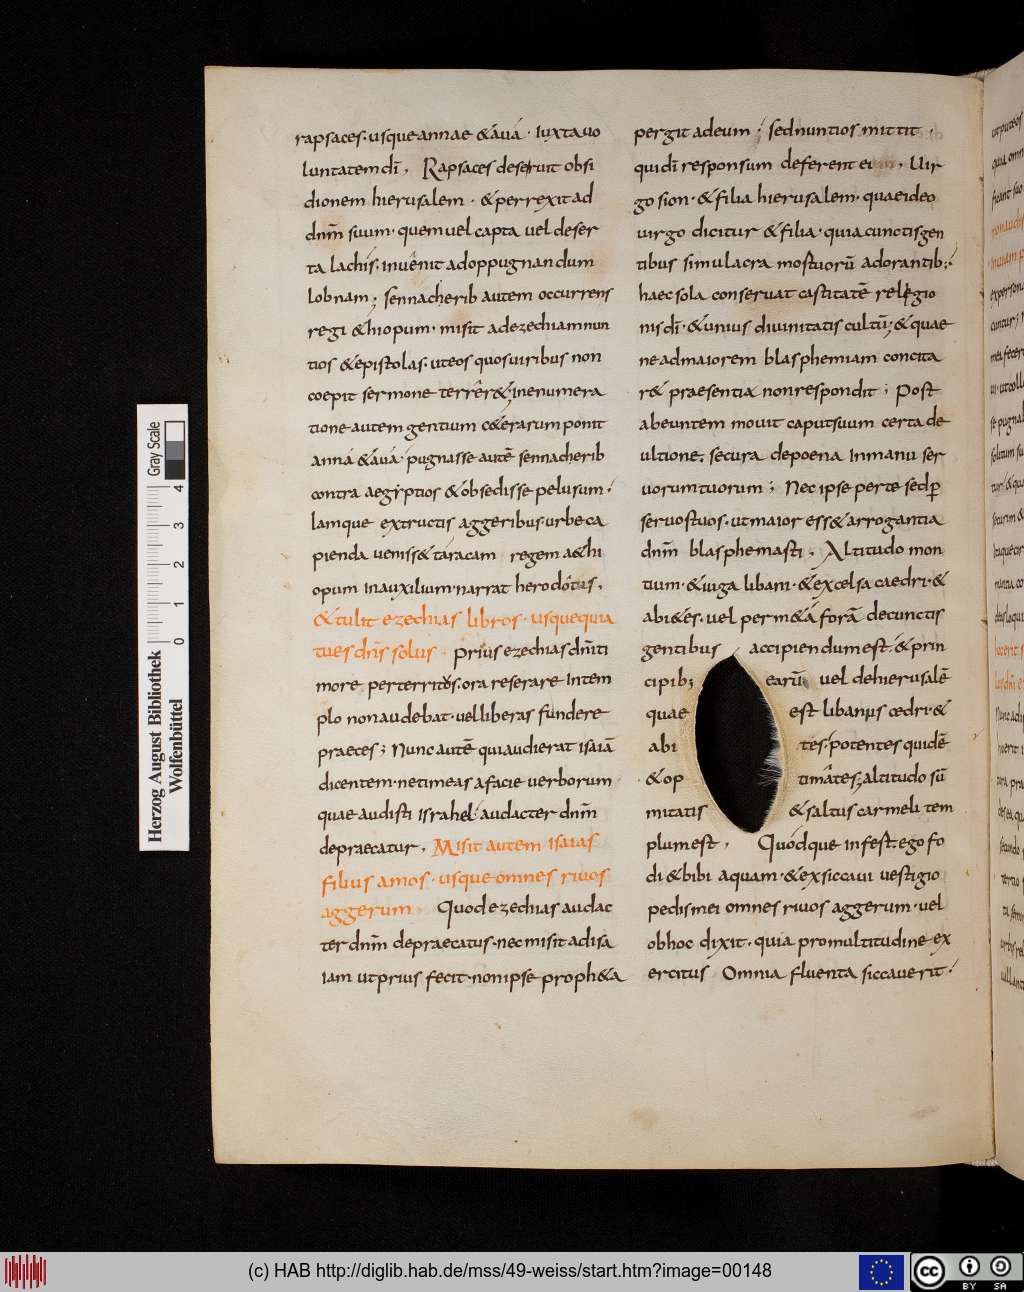 rapsaces. usque annae & áuá. Iuxta uo
luntatem dī. Rapsaces deseruit obsi
dionem hierusalem. & perrexit ad
dnm̄ suum. quem uel capta uel deser
ta lachis. inuenit ad oppugnandum
lobnam; sennacherib autem occurrens
regi & hiopum. misit ad ezechiam nun
tios & epistolas. ut eos quos uiribus non
coepit sermone terrer&. in enumera
tione autem gentium c&erarum ponit
anná & áuá. pugnasse autē sennacherib
contra aegyptios & obsedisse pelusum.
Iamque extructis aggeribus. urbe ca
pienda uenis & taracam regem a&hi
opum in auxilium. narrat herodotus.
& tulit ezechias libros. usquequia
tu es dn̄s solus. Prius ezechias dnīti
more perterritos. ora reserare In tem
plo non audebat. uel liberas fundere
praeces; Nunc autē quia audierat isaiā
dicentem. ne timeas a facie uerborum
quae audisti Israhel audacter dnm̄
depraecatur. Misit autem isaias
filius amos. usque omnes riuos
aggerum Quod ezechias audac
ter dnm̄ depraecatus. nec misit ad isa
iam ut prius fecit. non ipse proph&a
pergit ad eum; sed nuntios mittit.
qui dī responsum deferent ei. Uir
go sion. & filia hierusalem. quae ideo
uirgo dicitur & filia. quia cunctis gen
tibus simulacra mostuorū adorantib;
haec sola conseruat castitatē religio
nis dī. & unius diuinitatis cultū; & quae
ne ad maiorem blasphemiam concita
r& praesentia non respondit; Post
abeuntem mouit caput suum certa de
ultione. secura de poena In manu ser
uorum tuorum; Nec ipse per te sed ꝑ
seruos tuos. ut maior ess& arrogantia
dnm̄ blasphemasti. Altitudo mon
tium. & iuga libani. & excelsa caedri. &
abi&es. uel perm&aforā de cunctis
gentibus accipiendum est. & prin
cipib; earū uel de hierusalē
quae est libanus cedri. &
abi tes. potentes quidē
& op timátes; altitudo sū
mitatis & saltus carmeli tem
plum est. Quodque infest. ego fo
di & bibi aquam. & exsiccaui uestigio
pedis mei omnes riuos aggerum. uel
ob hoc dixit. quia pro multitudine ex
ercitus Omnia fluenta siccauerit.
Herzog August Bibliothek
Wolfenbüttel
0 1 2 3 4
Gray Scale
(c) HAB http://diglib.hab.de/mss/49-weiss/start.htm?image=00148
cc BY SA